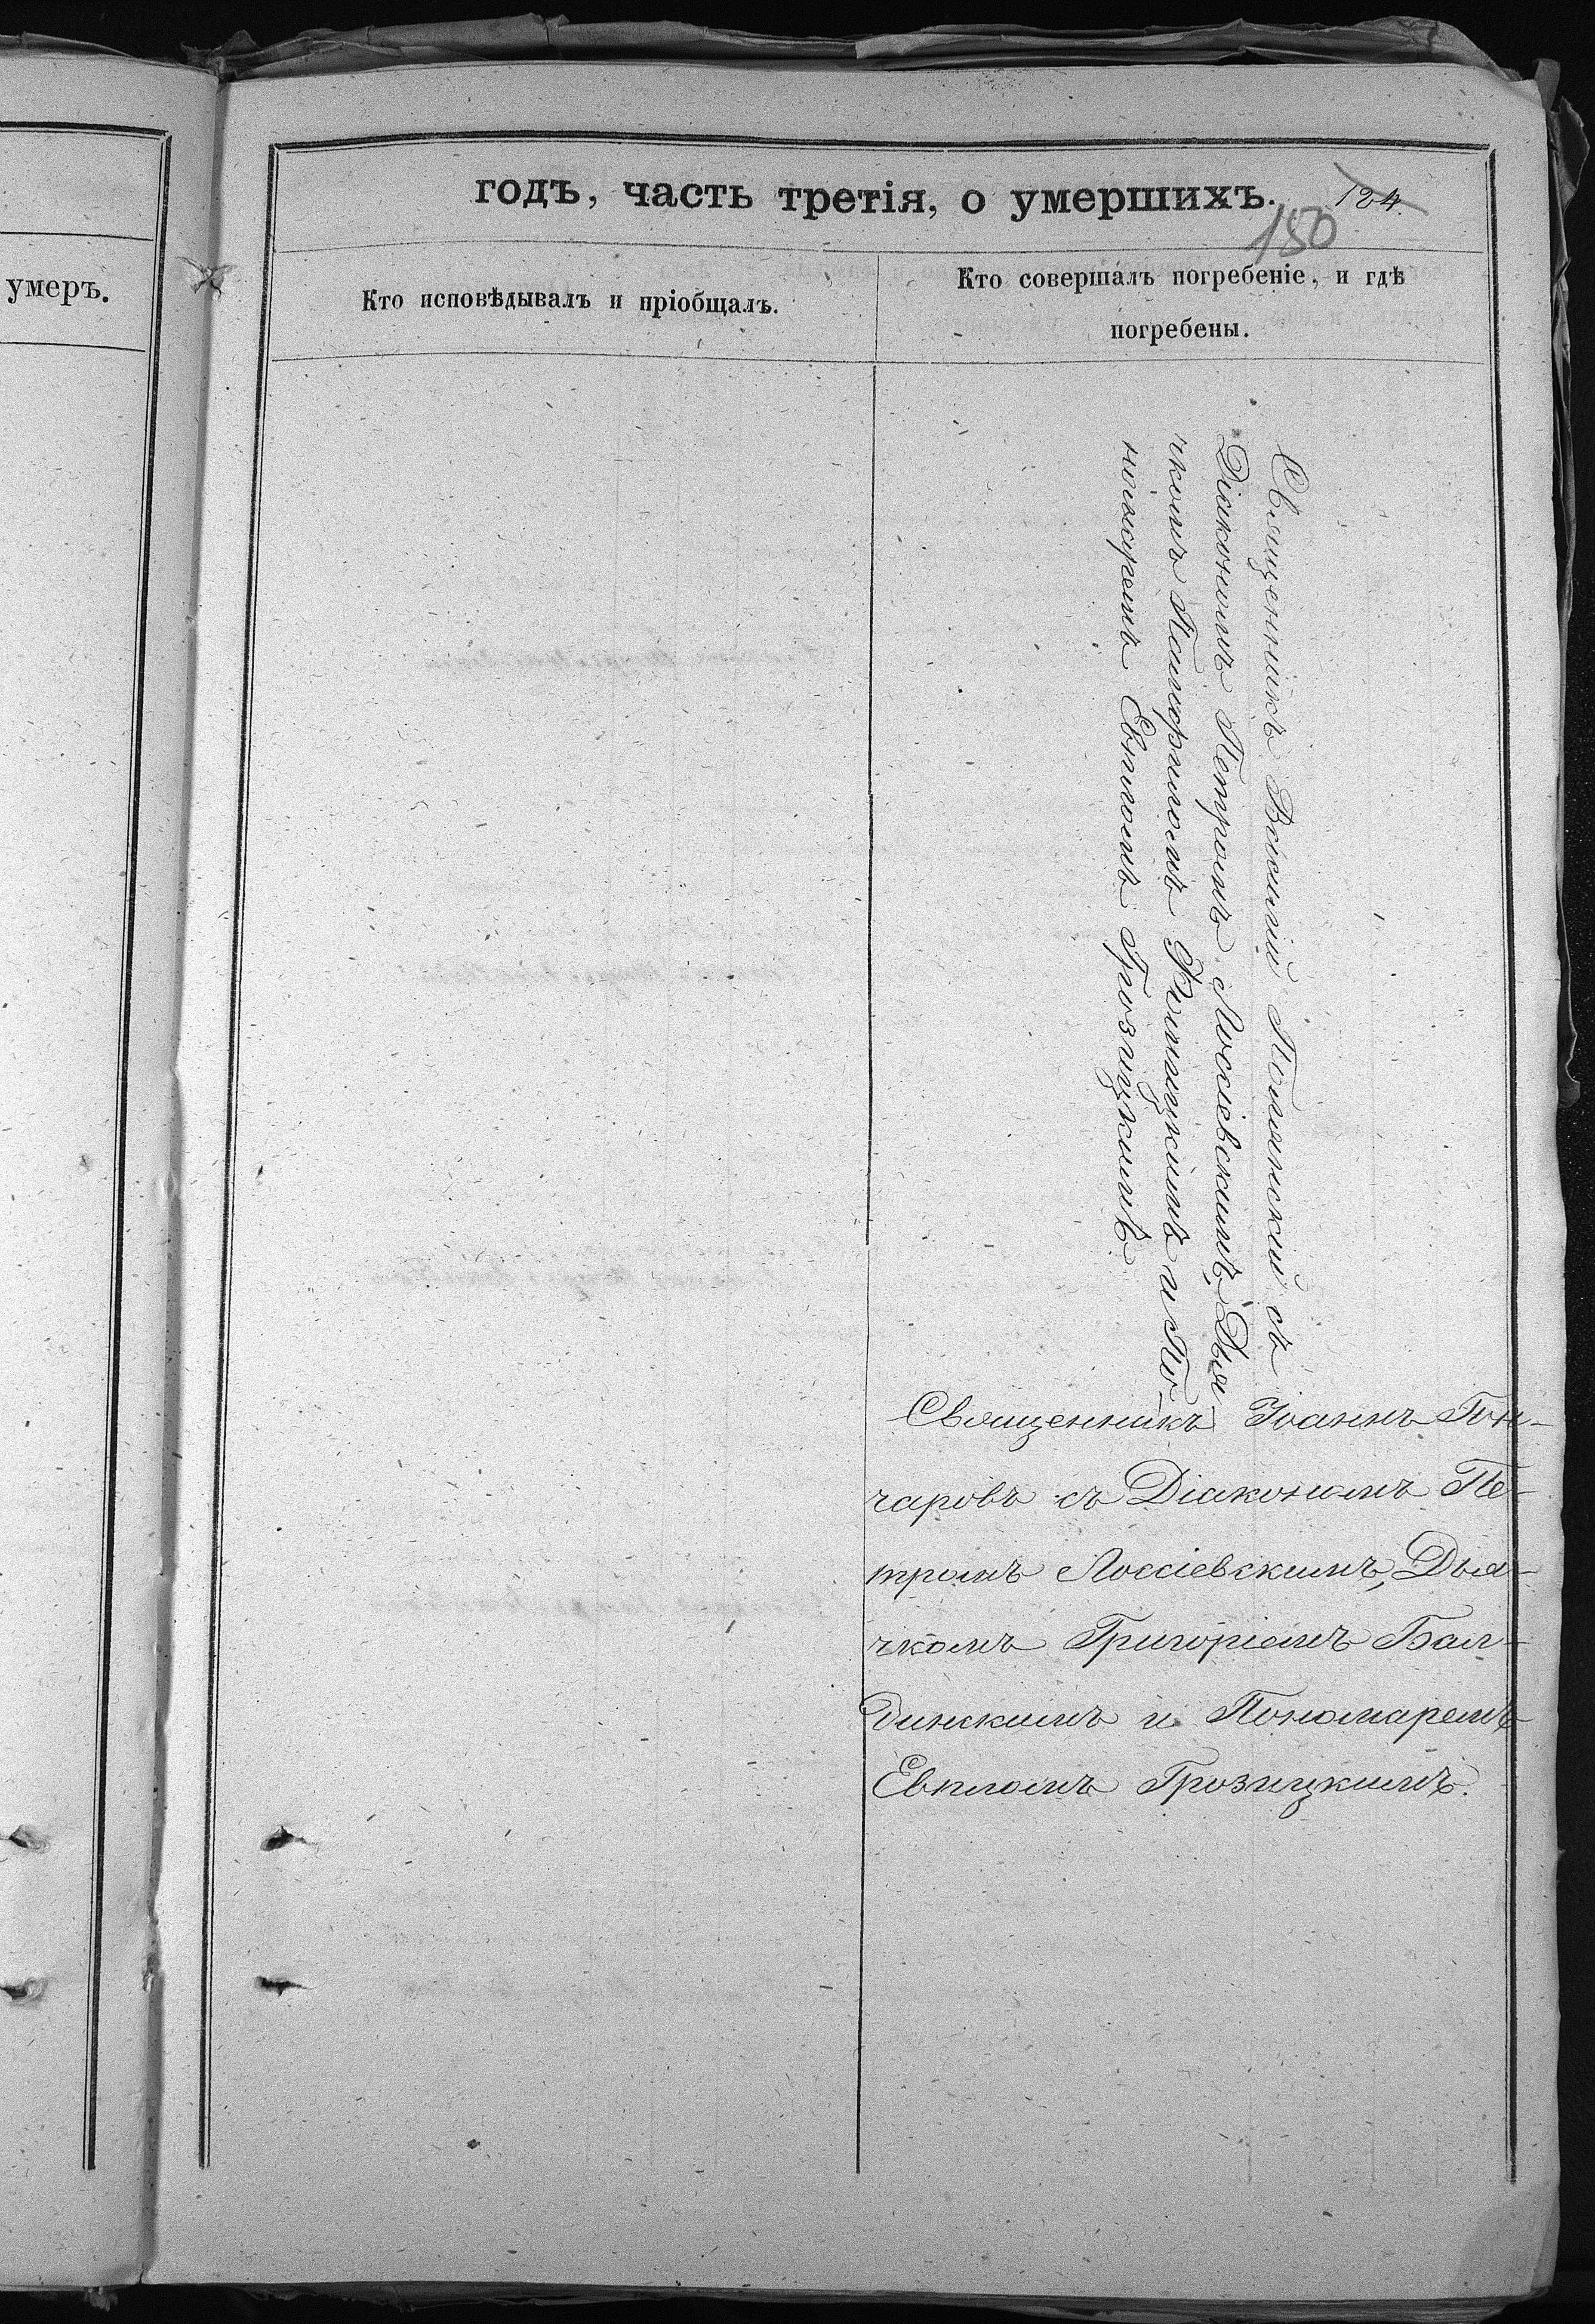 умеръ.
годъ, часть третія, о умершихъ.
124.
150
Кто исповѣдывалъ и пріобщалъ.
Кто совершалъ погребеніе, и гдѣ
погребены.
Священникъ Василій Полянскій съ
Діакономъ Петромъ Лоссіевскимъ, Дья
чкомъ Памфиломъ и По
номаремъ Евпломъ Грозицкимъ
Священникъ Іоаннъ Гон-
чаровъ съ Діакономъ Пе-
тромъ Лоссіевскимъ, Дья-
чкомъ Григоріемъ Бал-
динскимъ и Пономаремъ
Евпломъ Грозицкимъ.